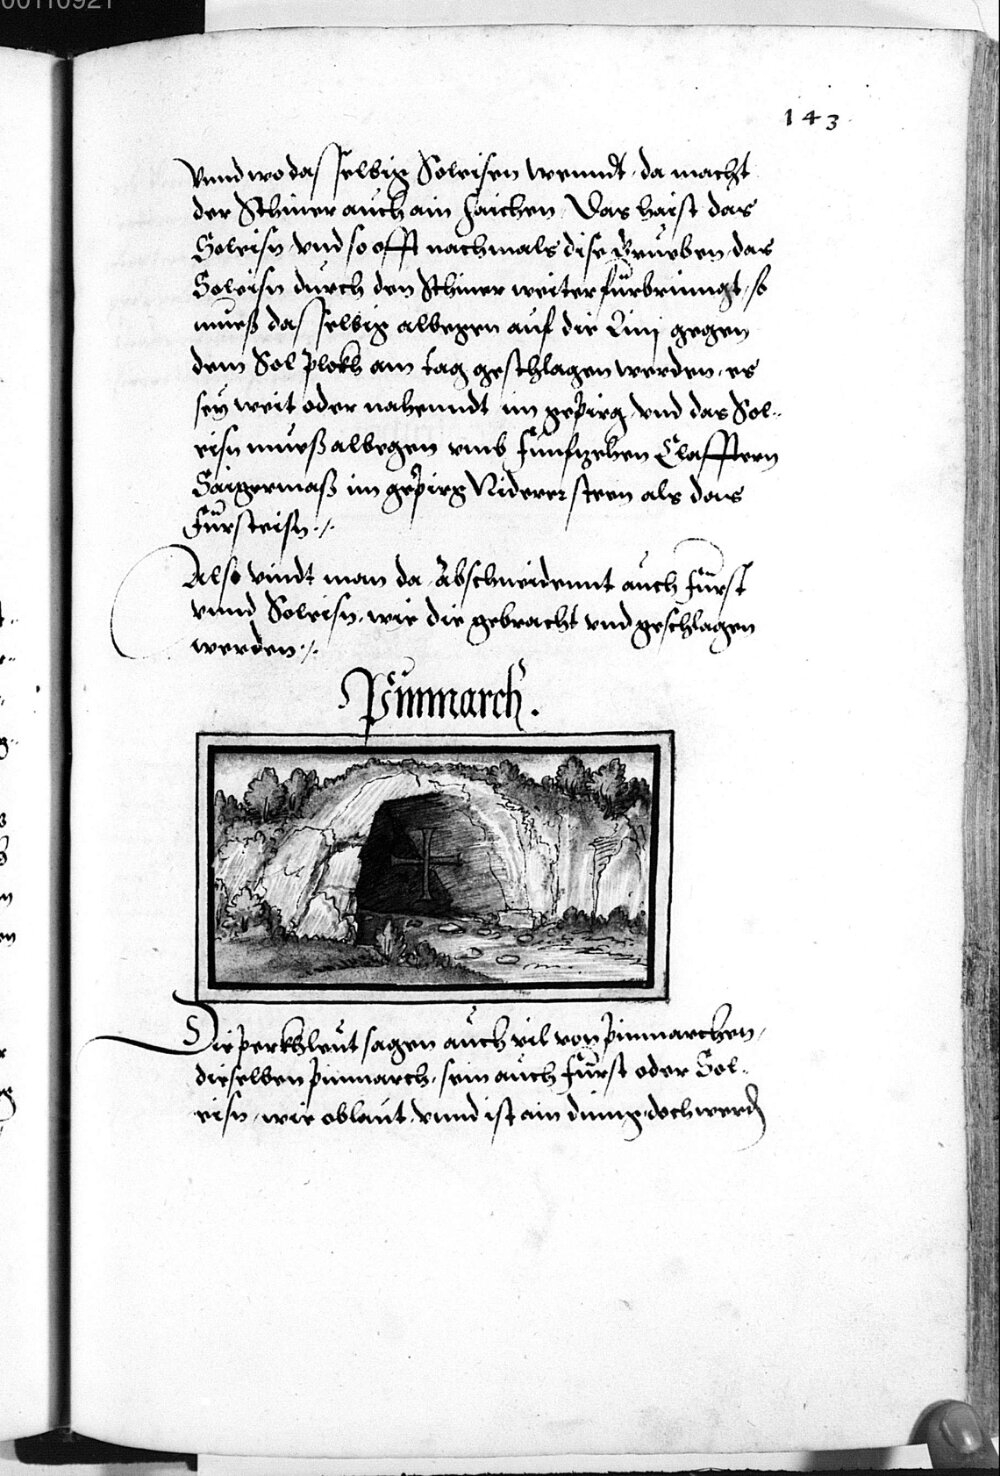 143
Vnnd wo dasselbig Soleisen wenndt, da macht
der Schiner auch ain zaichen, Das haist das
Soleisn, vnd so offt nachmals dise Grueben, das
Soleisn durch den Schiner weiter fürbringt, so
mueß dasselbig albegen auf die Lini gegen
dem Sol plokh am tag geschlagen werden, es
sey weit oder nahenndt im gepirg, vnd das Sol-
eisn mueß albegen vmb funfzehen Claffttern
Saigermaß im gepirg Niderer steen als das
Fürsteisn ./.
Also vindt man da Abschneidennt auch Fürst
vnnd Soleisn, wie die gebracht vnd geschlagen
werden ./.
Pinmarch.
Die perkhleut sagen auch vil von pinmarchen,
dieselben pinmarch, sein auch Fürst oder Sol-
eisn, wie oblaut, vnnd ist ain dinng, doch werdn